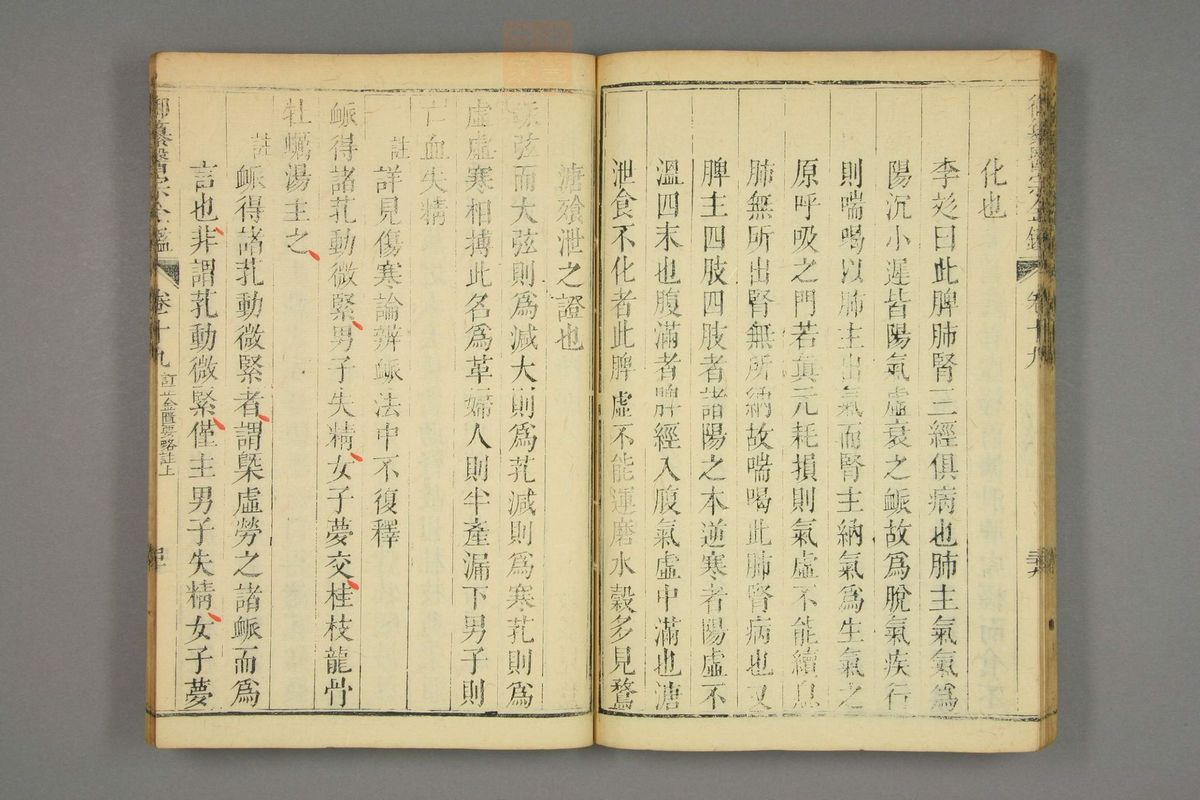 化也
李彣曰此脾肺腎三經俱病也肺主氣氣爲
陽沉小遲皆陽氣虛衰之䘑故爲脫氣疾行
則喘喝以肺主出氣而腎主納氣爲生氣之
原呼吸之門若眞元耗損則氣虛不能續息
肺無所出腎無所納故喘喝此肺腎病也又
脾主四肢四肢者諸陽之本逆寒者陽虛不
溫四末也腹滿者脾經入腹氣虛中滿也溏
泄食不化者此脾虛不能運磨水穀多見鶩
溏飱泄之證也
䘑弦而大弦則爲減大則爲芤減則爲寒芤則爲
虛虛寒相搏此名爲革婦人則半產漏下男子則
亡血失精
註
詳見傷寒論辨䘑法中不復釋
䘑得諸芤動微緊男子失精女子夢交桂枝龍骨
牡蠣湯主之
註
䘑得諸芤動微緊者謂槩虛勞之諸䘑而爲
言也非謂芤動微緊僅主男子失精女子夢
御纂醫宗金鑑
卷十九
訂正金匱要略註上